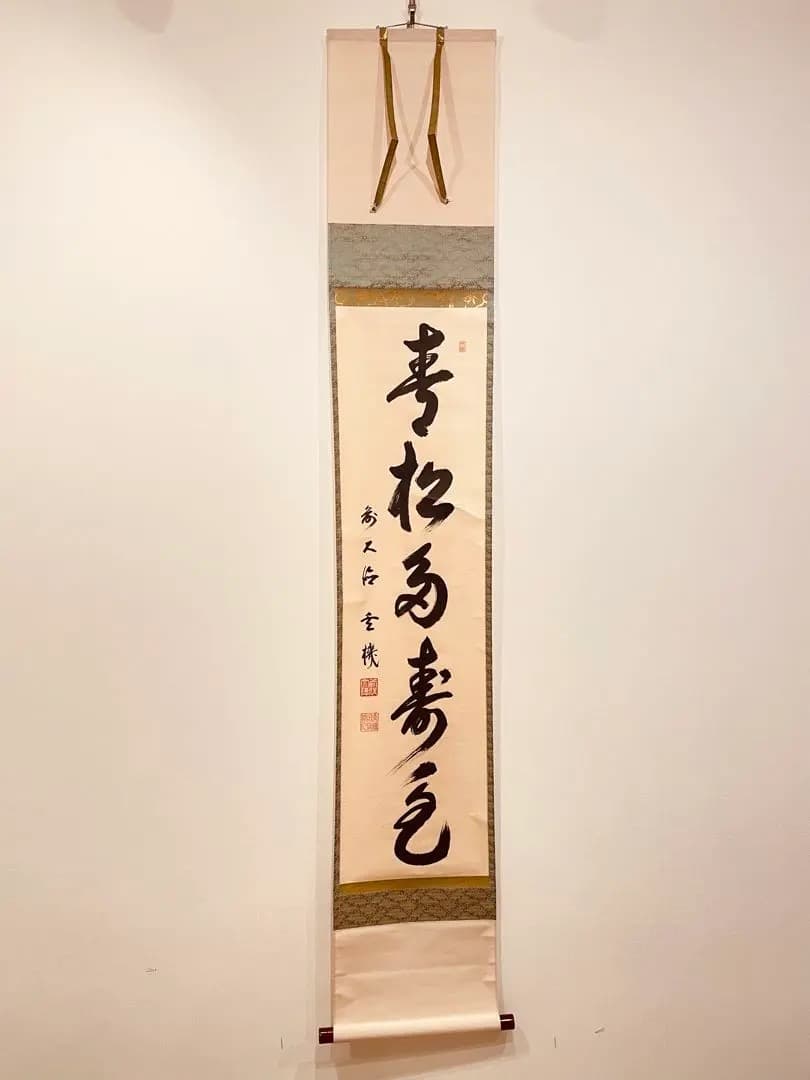 青松多寿色
前大徳 雲機